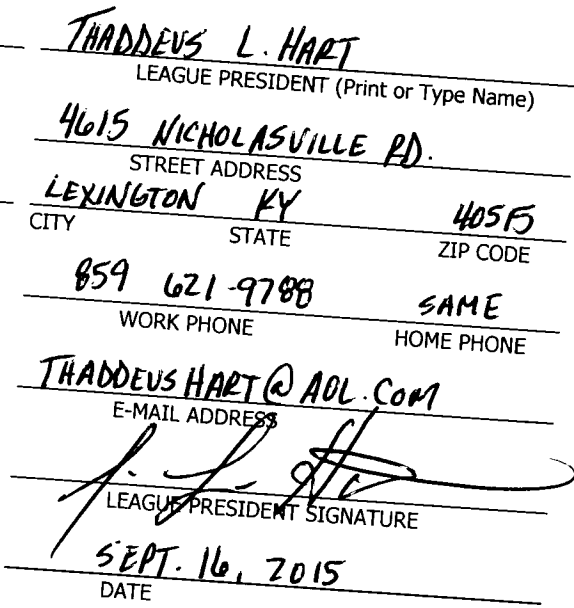 THADDEUS L. HART
LEAGUE PRESIDENT (Print or Type Name)
4615 NICHOLASVILLE RD.
STREET ADDRESS
LEXINGTON KY 40515
CITY STATE ZIP CODE
859 621-9788 SAME
WORK PHONE HOME PHONE
THADDEUSHART@AOL.COM
E-MAIL ADDRESS
LEAGUE PRESIDENT SIGNATURE
SEPT. 16, 2015
DATE